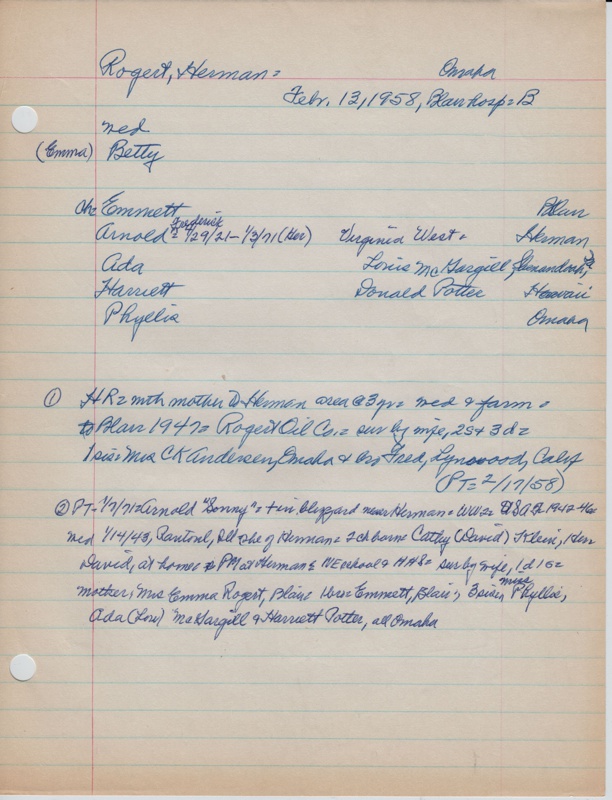 Rogert, Herman =
Omaha
Febr. 13, 1958, Blair hosp = B
med
(Emma) Betty
ch = Emmett Blair
Frederick
Arnold = 7/29/21 - 1/3/71 (Her) Virginia West = Herman
Ada Louis McGargill, Shenandoah, Ia
Harriett Donald Potter Hawaii
Phyllis Omaha
① HR = with mother to Herman area @ 3 yr = med & farm =
to Blair 1947 = Rogert Oil Co. = sur by wife, 2s + 3d =
1 sis = Mrs CK Andersen, Omaha & bro Fred, Lynwood, Calif
(PT = 2/17/58)
② PT - 1/7/71 = Arnold "Sonny" = + in blizzard near Herman = WW2 = USA 1942-46 =
med 1/14/43, Rantoul, Ill she of Herman = 2 ch borne Cathy (David) Klein, Her
David, at home = PM at Herman & NE school & HHS = sur by wife, 1d 1s =
mother, Mrs Emma Rogert, Blair 1 bro = Emmett, Blair, 3 sis =
miss
Phyllis,
Ada (Lou) McGargill & Harriett Potter, all Omaha